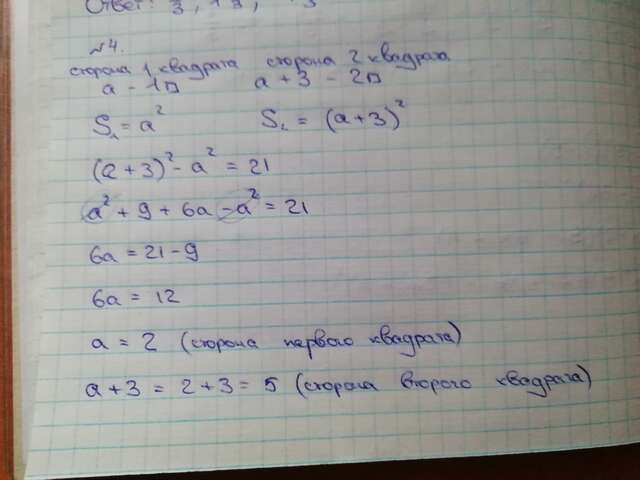 Ответ: 3
№4.
сторона 1 квадрата сторона 2 квадрата
a - 1□ a + 3 - 2□
S₁ = a² S₂ = (a+3)²
(a+3)² - a² = 21
a² + 9 + 6a - a² = 21
6a = 21 - 9
6a = 12
a = 2 (сторона первого квадрата)
a + 3 = 2 + 3 = 5 (сторона второго квадрата)